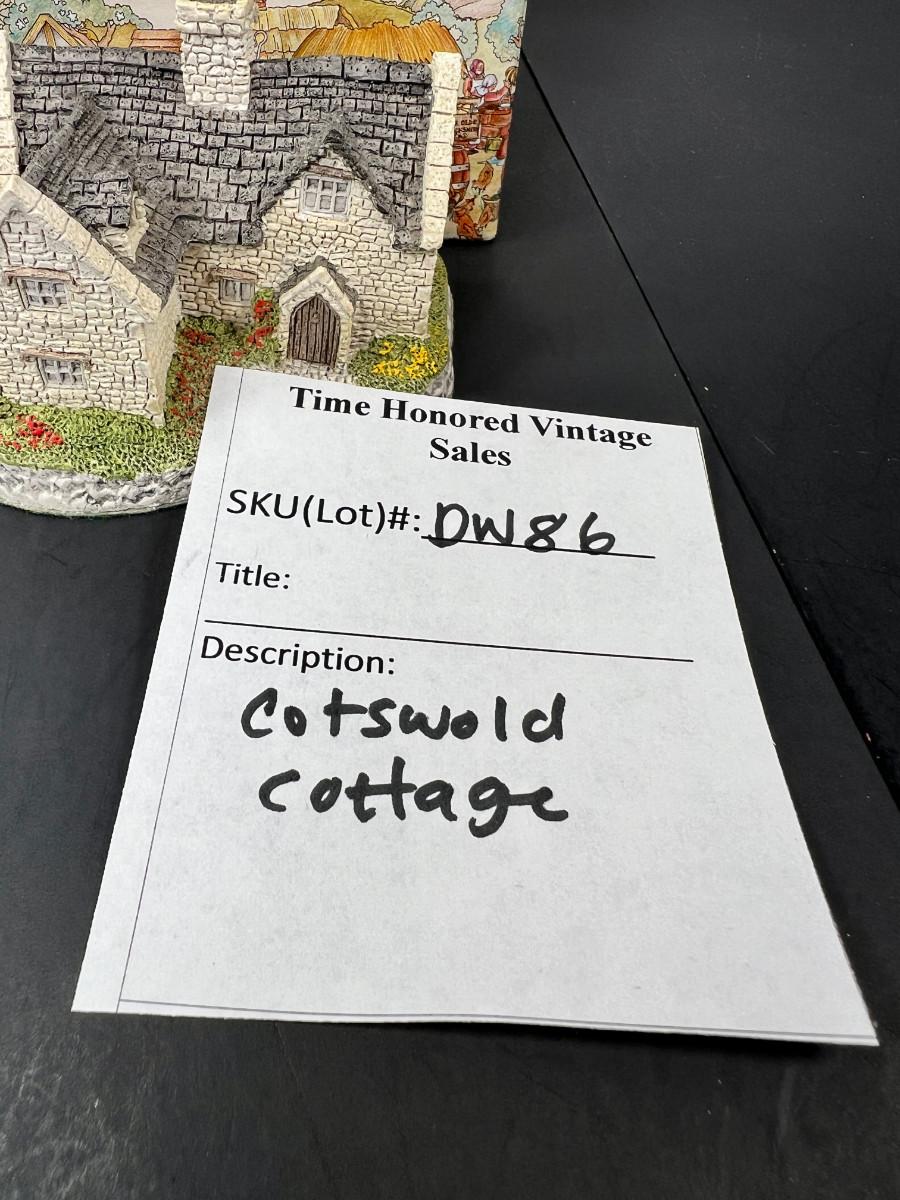 Time Honored Vintage
Sales
SKU(Lot)#: DW86
Title:
Description:
Cotswold
Cottage